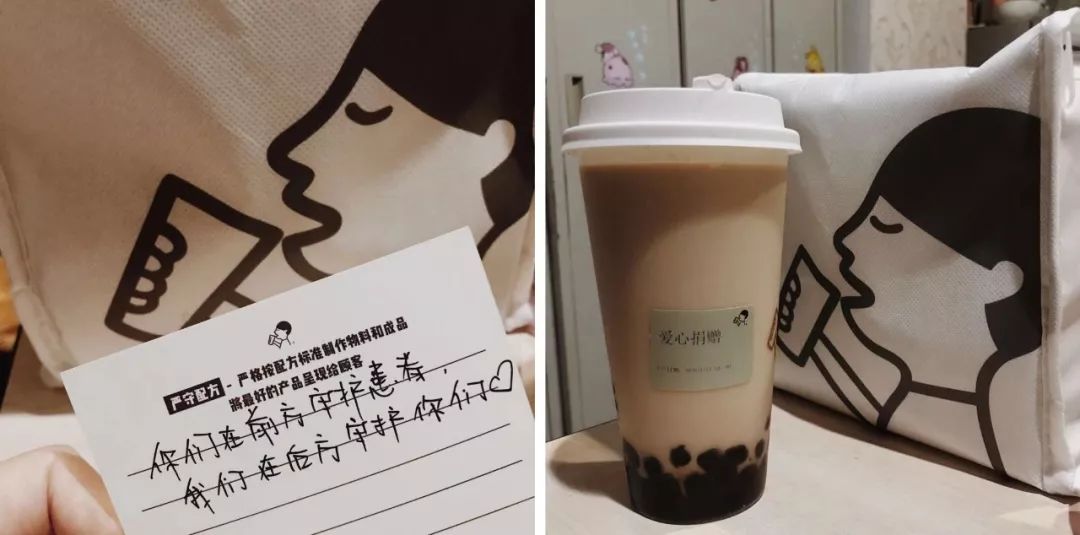 严守配方 - 严格按配方标准制作物料和成品
将最好的产品呈现给顾客
你们在前方守护患者,
我们在后方守护你们♡
爱心捐赠